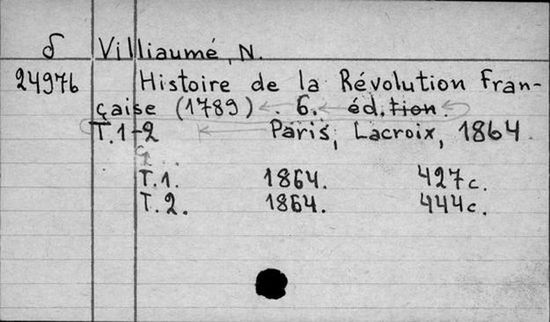 δ Villiaumé, N.
24976 Histoire de la Révolution Fran-
çaise (1789). 6. éd.
T.1-2 Paris, Lacroix, 1864.
T.1. 1864. 427c.
T.2. 1864. 444c.